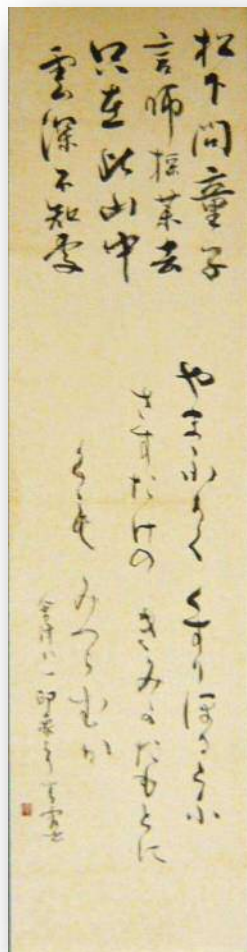 松下問童子
言師採薬去
只在此山中
雲深不知處
やまふかく くすりほるとふ
さすたけの きみかたもとに
くも みつらむか
会津八一 印象より